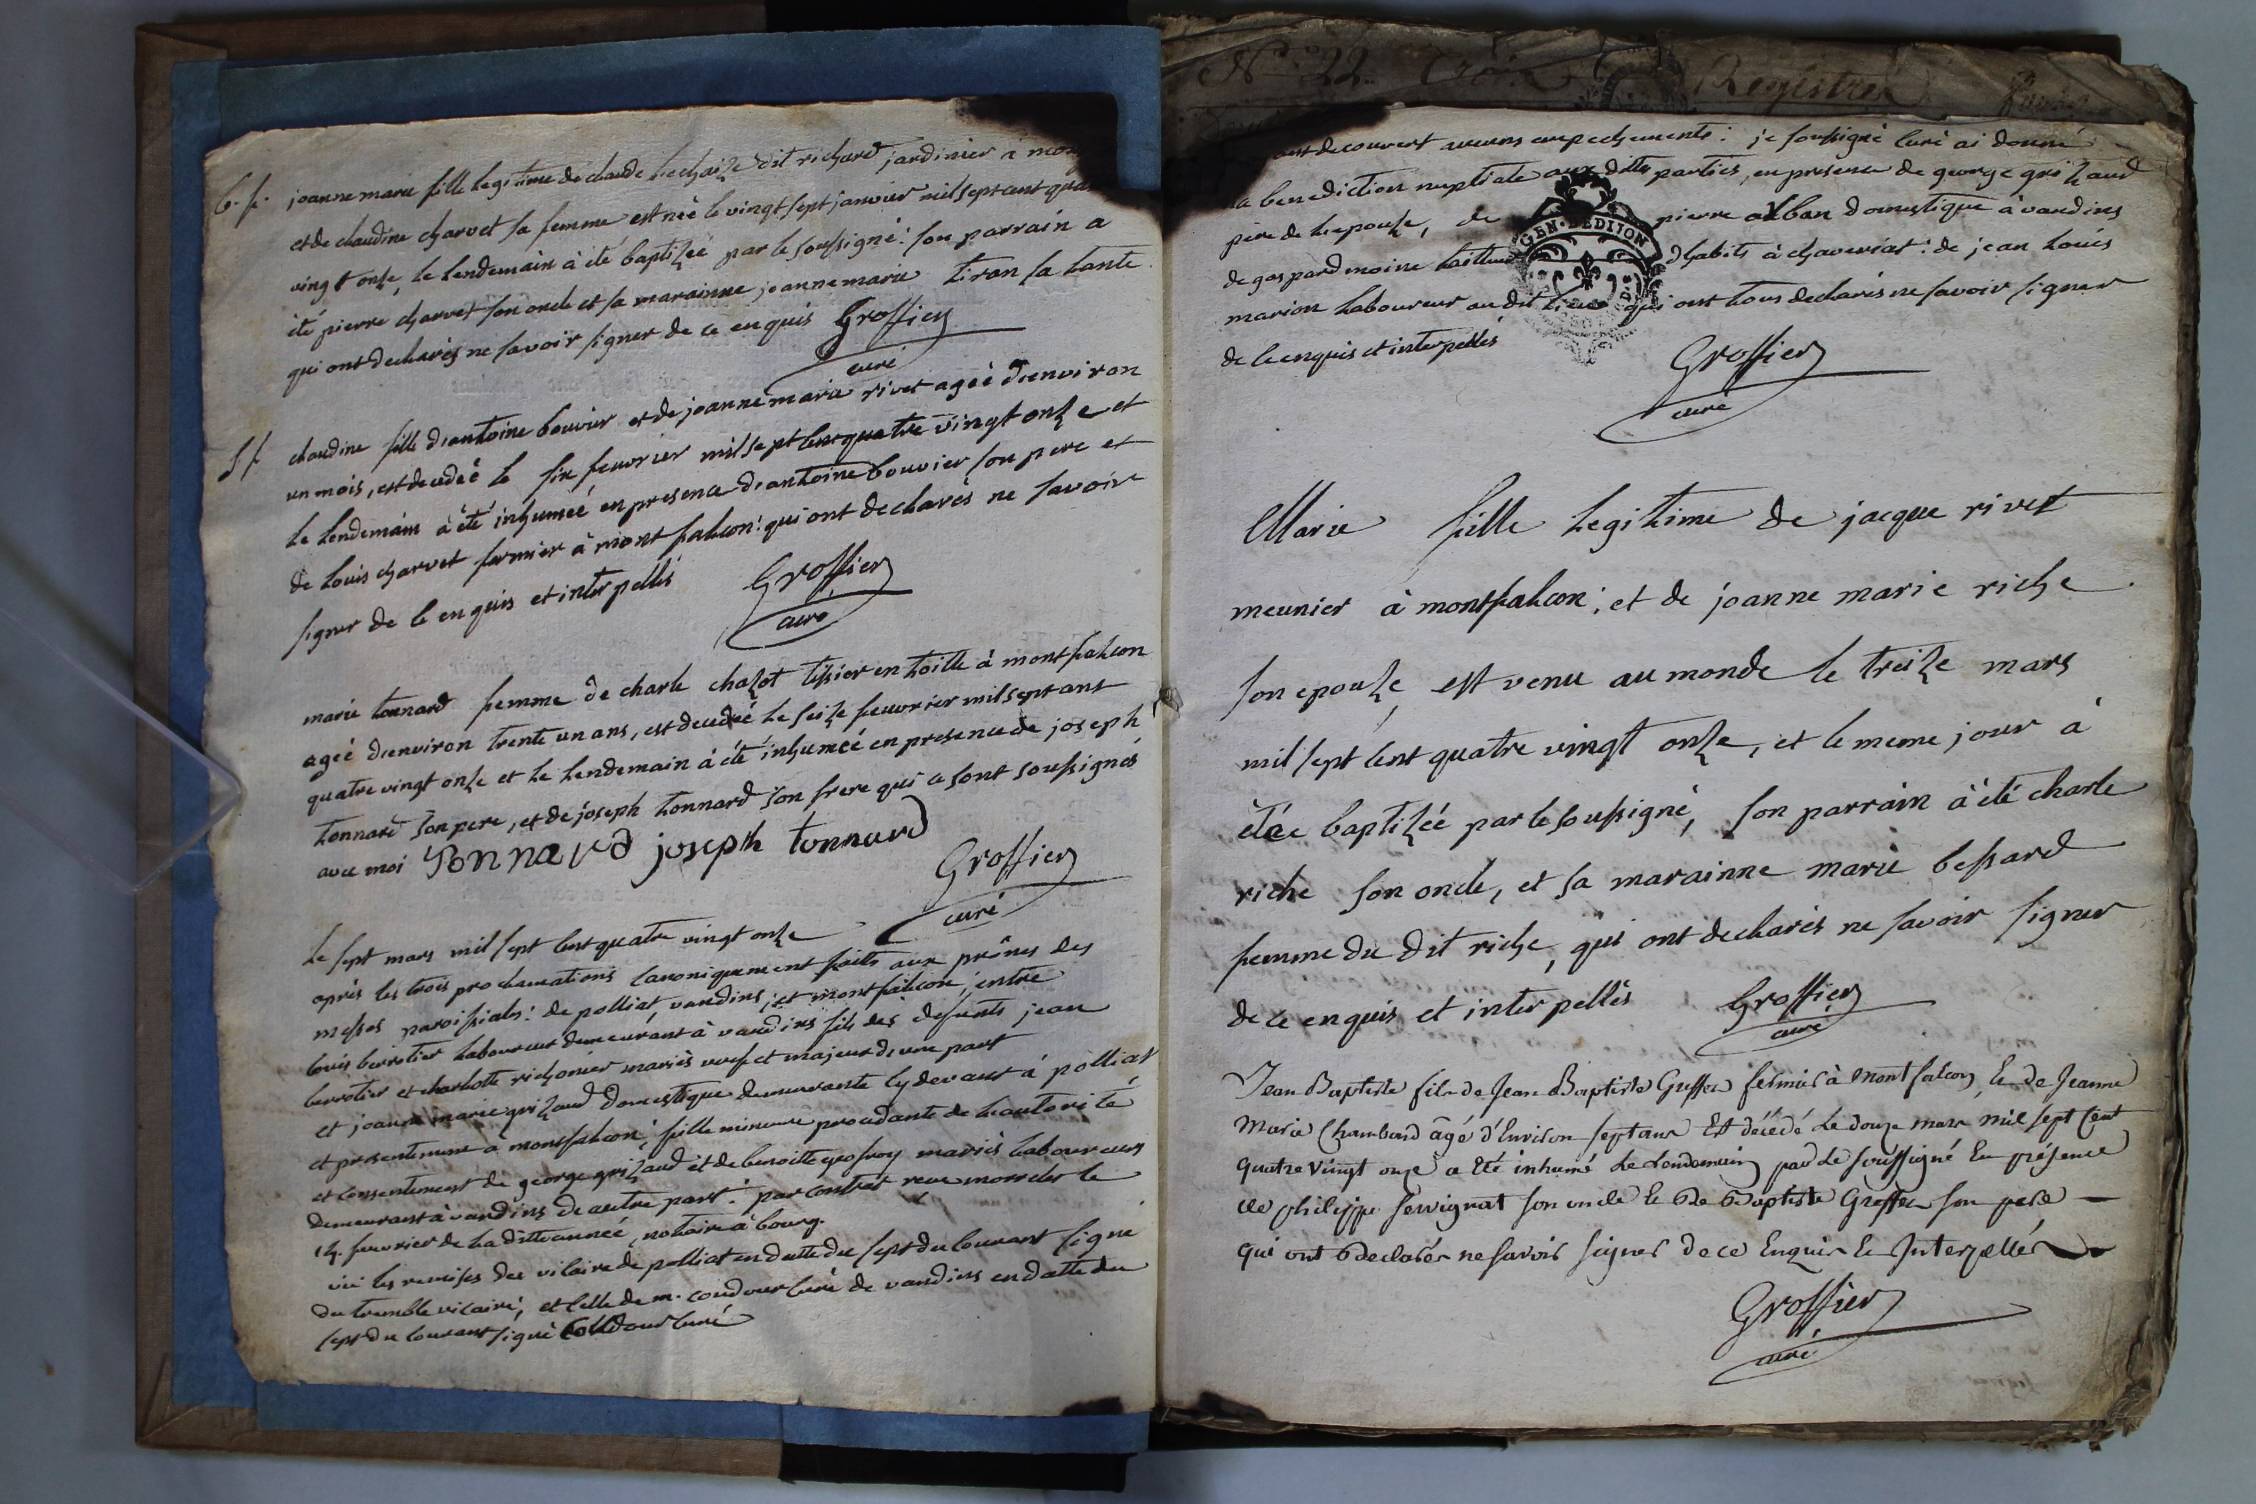 b. f. joanne marie fille legitime de claude lechaize dit richard jardinier à
et de claudine charvet sa femme est née le vingt sept janvier mil sept cent
vingt onze, le lendemain à été baptizée par le soussigné : son parrain a
été pierre charvet son oncle et sa marainne joanne marie tiran sa tante
qui ont declarés ne savoir signer de ce enquis Groffier
curé
S f claudine fille d'antoine bouvier et de joanne marie rivet ageé d'environ
un mois, est decedeé le six feuvrier mil sept cent quatre vingt onze et
le lendemain à été inhumeé en presence d'antoine bouvier son pere et
de louis charvet fermier à montfalcon : qui ont declarés ne savoir
signer de ce enquis et interpellés Groffier
curé
marie tonnard femme de charle chazot tissier en toille à montfalcon
ageé d'environ trente un ans, est decedeé le seize feuvrier mil sept cent
quatre vingt onze et le lendemain à été inhumeé en presence de joseph
tonnard son pere, et de joseph tonnard son frere qui ce sont soussignés
avec moi Tonnard joseph tonnard
Groffier
curé
le sept mars mil sept cent quatre vingt onze
après les trois proclamations canoniquement faits aux prônes des
messes paroissiales : de polliat, vandins, et montfalcon, entre
louis berrotier laboureur demeurant à vandins fils des defunts jean
berrotier et charlotte richonier mariés veuf et majeur d'une part
et joanne marie grizaud domestique demeurante cy devant à polliat
et presentement à montfalcon, fille mineure procedante de l'autorité
et consentiment de george grizaud et de benoite geofroy mariés laboureurs
demeurant à vandins d'autre part : par contrat reçu morrelet le
14. feuvrier de la ditte année, notaire à bourg.
vu les remises du vicaire de polliat en datte du sept du courant signé
du tremble vicaire, et celle de m. coudour curé de vandins en datte du
sept du courant signé Coudour curé
N° 22 Registre
decouvert aucuns empechements : je soussigné curé ai donné
la benediction nuptiale aux dittes parties, en presence de george grizaud
pere de l'epouse, de pierre alban domestique à vandins
de gaspard moine tailleur d'habits à chaveriat : de jean louis
marion laboureur au dit lieu qui ont tous declarés ne savoir signer
de ce enquis et interpellés
GEN. DE DIJON
Groffier
curé
Marie fille legitime de jacque rivet
meunier à montfalcon, et de joanne marie riche
son epouse, est venu au monde le treize mars
mil sept cent quatre vingt onze, et le meme jour à
étée baptizée par le soussigné, son parrain à été charle
riche son oncle, et sa marainne marie bessard
femme du dit riche, qui ont declarés ne savoir signer
de ce enquis et interpellés Groffier
curé
Jean Baptiste fils de Jean Baptiste Greffet fermier à montfalcon, & de Jeanne
Marie Chambard âgé d'Environ sept ans Est décédé Le douze mars mil sept Cent
quatre vingt onze a Eté inhumé Le Lendemain par Le soussigné En présence
de philippe servignat son oncle & de Baptiste Greffet son pere —
qui ont declarés ne savoir signer de ce Enquis & Interpellés
Groffier
curé